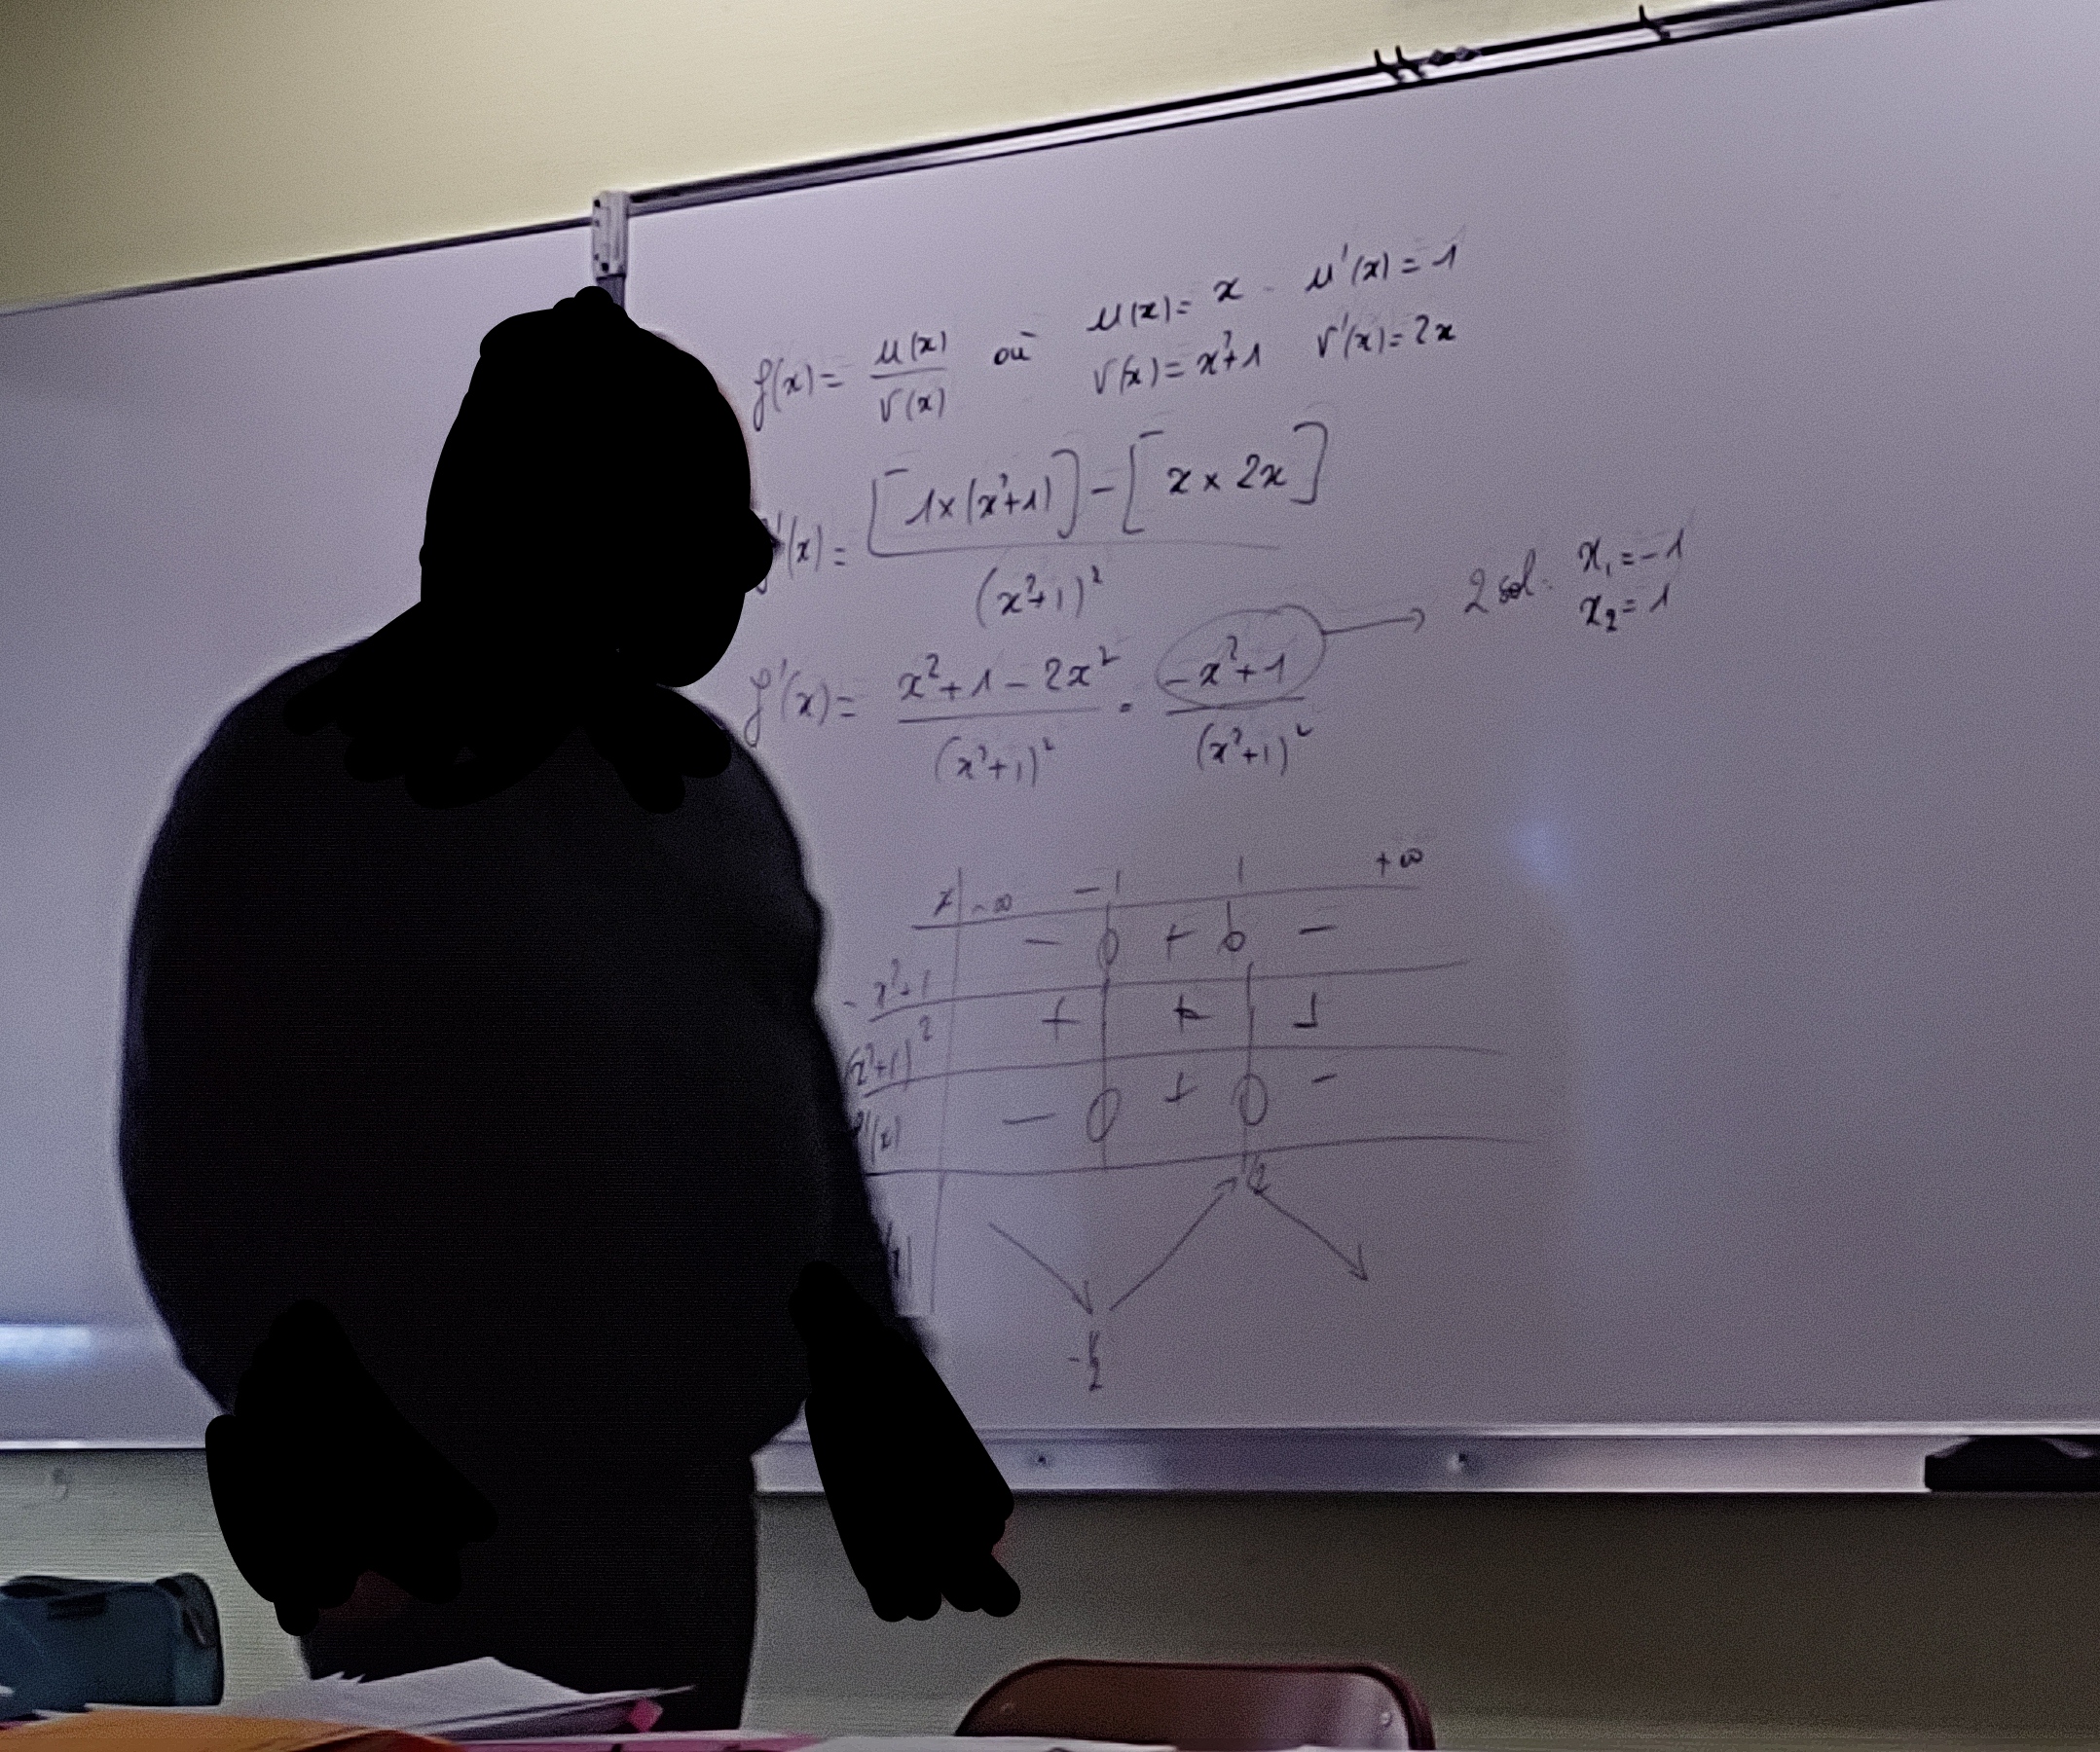 f(x) = u(x)/v(x) où u(x) = x u'(x) = 1
v(x) = x²+1 v'(x) = 2x
'(x) = [1×(x²+1)] - [x × 2x] / (x²+1)²
f'(x) = x²+1-2x² / (x²+1)² = -x²+1 / (x²+1)² → 2 sol: x₁ = -1
x₂ = 1
x -∞ -1 1 +∞
-x²+1 - 0 + 0 -
(x²+1)² + + +
f'(x) - 0 + 0 -
1/2
-1/2